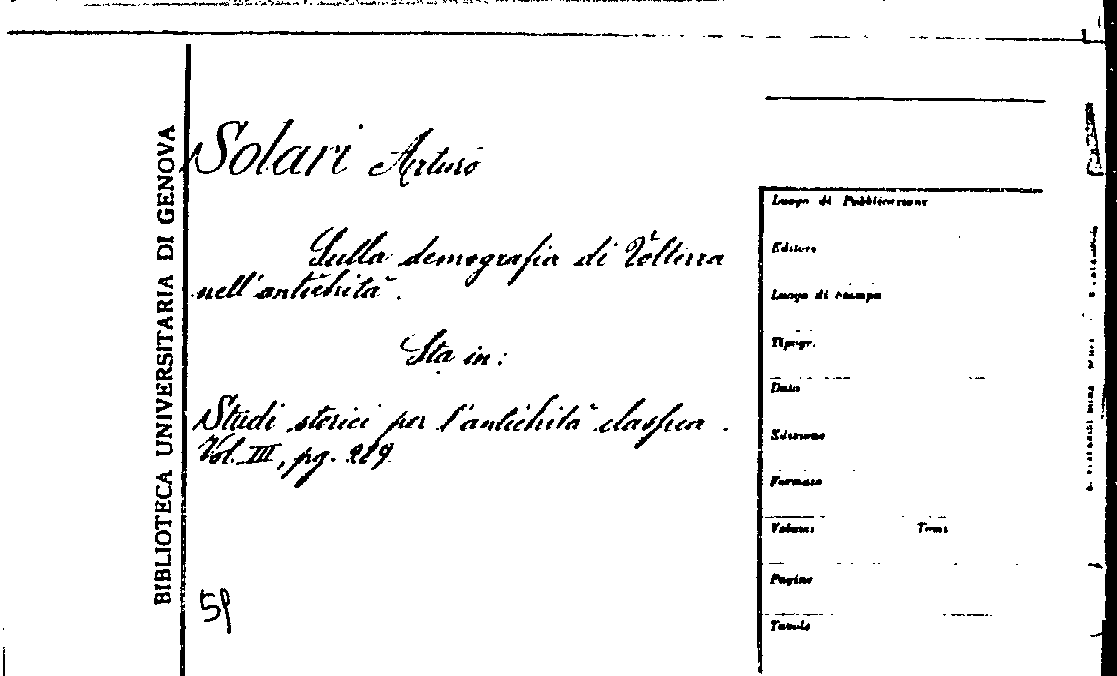 BIBLIOTECA UNIVERSITARIA DI GENOVA
Solari Arturo
Sulla demografia di Volterra
nell'antichità.
Sta in:
Studi storici per l'antichità classica.
Vol. III, pg.
Luogo di Pubblicazione
Editore
Luogo di stampa
Tipogr.
Data
Edizione
Formato
Volumi Tomi
Pagine
Tavole